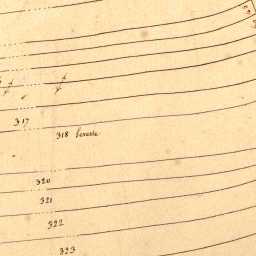 317
318
320
321
322
323